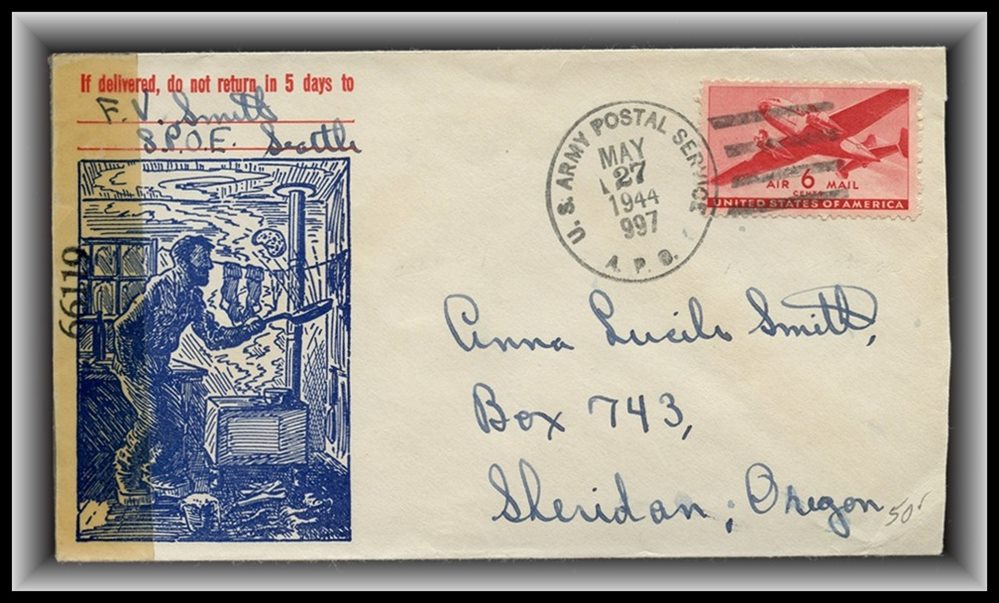 If delivered, do not return in 5 days to
F. V. Smith
S.P.O.E. Seattle
66119
U. S. ARMY POSTAL SERVICE
MAY
27
1944
997
A. P. O.
AIR 6 MAIL
CENTS
UNITED STATES OF AMERICA
Anna Lucile Smith,
Box 743,
Sheridan, Oregon
50